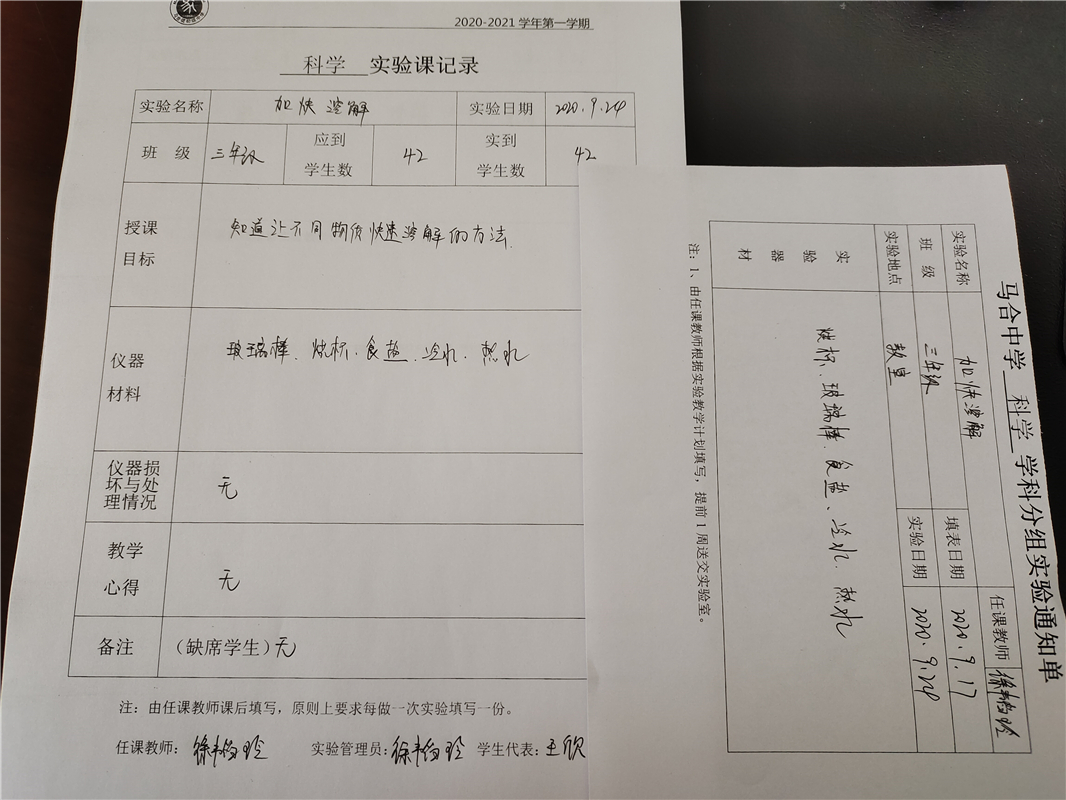 2020-2021 学年第一学期
科学 实验课记录
实验名称 加快溶解 实验日期 2020.9.24
班 级 三年级 应到学生数 42 实到学生数 42
授课
目标
知道让不同物质快速溶解的方法.
仪器
材料
玻璃棒、烧杯、食盐、冷水、热水
仪器损
坏与处
理情况
无
教学
心得
无
备注 (缺席学生)无
注：由任课教师课后填写，原则上要求每做一次实验填写一份。
任课教师： 实验管理员： 学生代表：王欣
马合中学 科学 学科分组实验通知单
任课教师
实验名称 加快溶解 填表日期 2020.9.17
班 级 三年级 实验日期 2020.9.24
实验地点 教室
实验器材
烧杯、玻璃棒、食盐、冷水、热水
注：1、由任课教师根据实验教学计划填写，提前1周送交实验室。